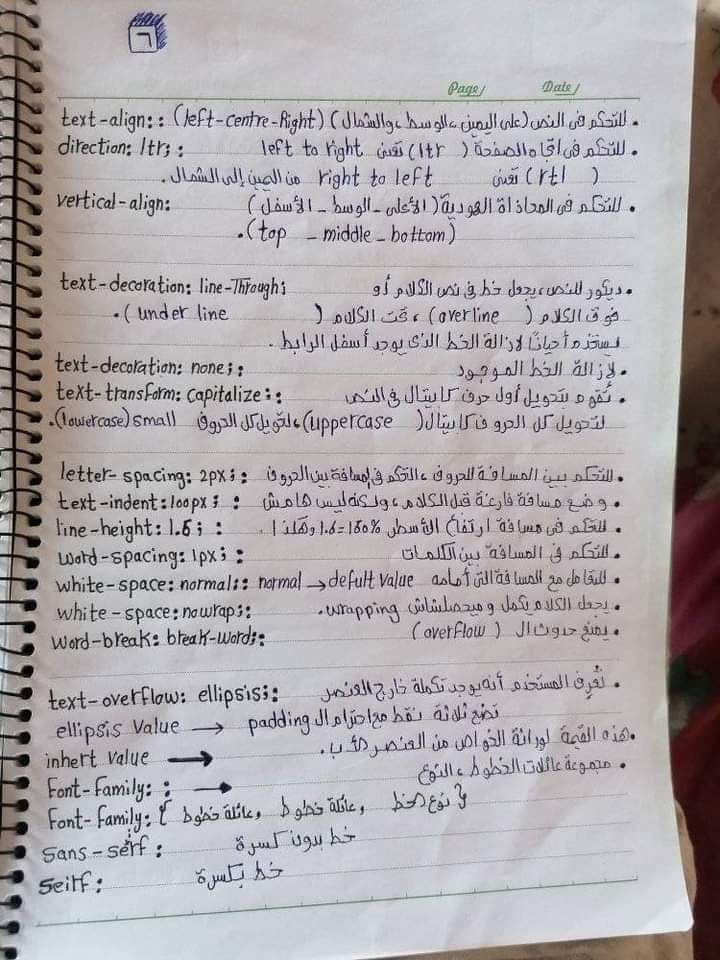 ٦
Page/ Date/
text-align:: (left-centre-Right) للتحكم فى النص (على اليمين، الوسط، والشمال)
direction: ltr;: للتحكم فى اتجاه الصفحة (ltr) تعنى left to right
(rtl) تعنى right to left من اليمين إلى الشمال.
vertical-align: للتحكم فى المحاذاة العمودية (الأعلى - الوسط - الأسفل)
(top - middle - bottom).
text-decoration: line-Through; ديكور للنص، يجعل خط فى نص الكلام أو
فوق الكلام (overline)، تحت الكلام (under line).
يستخدم أحيانًا لإزالة الخط الذى يوجد أسفل الرابط.
text-decoration: none;: لإزالة الخط الموجود
text-transform: capitalize;: تقوم بتحويل أول حرف كابيتال فى النص
لتحويل كل الحروف كابيتال (uppercase)، لتحويل كل الحروف small (lowercase).
letter-spacing: 2px;: للتحكم بين المسافة للحروف، التحكم فى المسافة بين الحروف
text-indent: 100px;: وضع مسافة فارغة قبل الكلام، ولكنه ليس هامش
line-height: 1.6;: للتحكم فى مسافة ارتفاع الأسطر 1.6=160% وهكذا.
word-spacing: 1px;: للتحكم فى المسافة بين الكلمات
white-space: normal:: normal → defult value للتعامل مع المسافة التى أمامه
white-space: nowrap;: يجعل الكلام يكمل وميحصلش wrapping.
word-break: break-word;: يمنع حدوث ال (overflow)
text-overflow: ellipsis;: تُعرف المستخدم أنه يوجد تكملة خارج العنصر
ellipsis value → تضع ثلاثة نقط مع احترام ال padding
inhert value → هذه القيمة لوراثة الخواص من العنصر الأب.
Font-family: : → مجموعة عائلات الخطوط، النوع
Font-family: { نوع الخط, عائلة خطوط, عائلة خطوط }
sans-serf: خط بدون كسرة
seirf: خط بكسرة